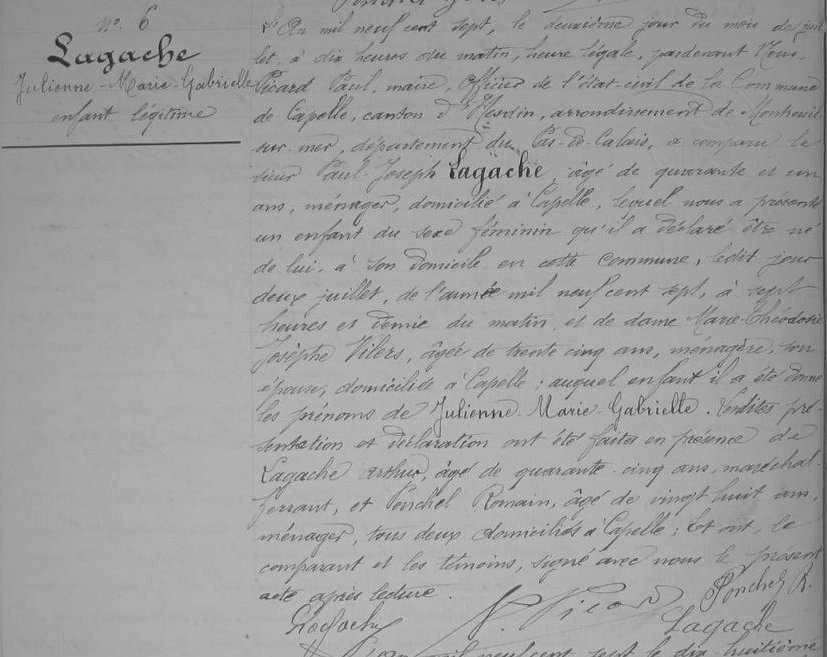 N°. 6
Lagache
Julienne-Marie-Gabrielle
enfant légitime
L'An mil neuf cent sept, le deuxième jour du mois de juil
let, à dix heures du matin, heure légale, pardevant Nous,
Picard Paul, maire, Officier de l'état-civil de la Commune
de Capelle, canton d'Hesdin, arrondissement de Montreuil-
sur-mer, département du Pas-de-Calais, a comparu le
sieur Paul-Joseph Lagache, âgé de quarante et un
ans, ménager, domicilié à Capelle, lequel nous a présenté
un enfant du sexe féminin qu'il a déclaré être né
de lui, à son domicile en cette Commune, ledit jour
deux juillet, de l'année mil neuf cent sept, à sept
heures et demie du matin, et de dame Marie-Théodosie
Josèphe Vilers, âgée de trente cinq ans, ménagère, son
épouse, domiciliée à Capelle ; auquel enfant il a été donné
les prénoms de Julienne-Marie-Gabrielle. Lesdites pré-
sentation et déclaration ont été faites en présence de
Lagache Arthur, âgé de quarante-cinq ans, maréchal-
ferrant, et Ponchel Romain, âgé de vingt huit ans,
ménager, tous deux domiciliés à Capelle ; Et ont, le
comparant et les témoins, signé avec nous le présent
acte après lecture.
Ponchel R.
Lagache P. Picard Lagache
mil neuf cent sept le dix-huitième